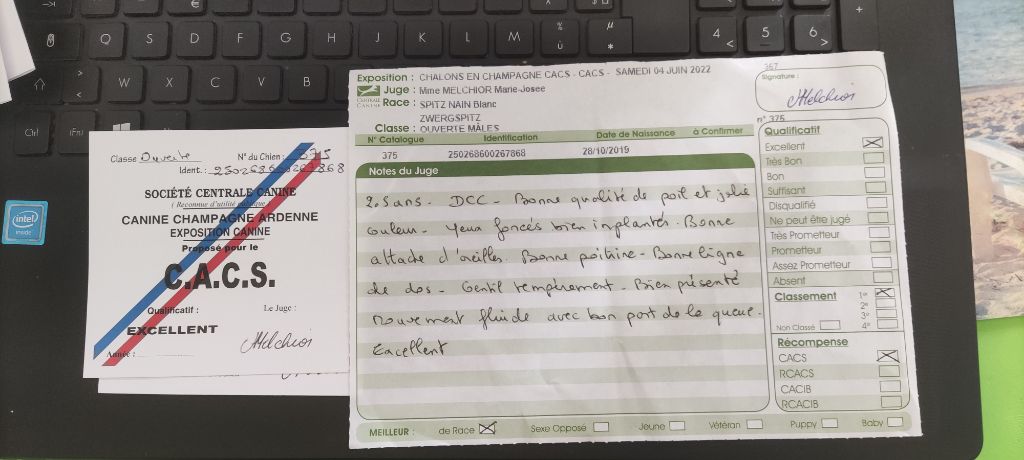 Q S D F G H J K L M % ù µ * 4 5 6 +
W X C V B
Ctrl (Fn) Alt
intel
inside
Classe Ouverte N° du Chien : 375
Ident. : 250268600267868
SOCIÉTÉ CENTRALE CANINE
( Reconnue d'utilité publique )
CANINE CHAMPAGNE ARDENNE
EXPOSITION CANINE
Proposé pour le
C.A.C.S.
Qualificatif : Le Juge :
EXCELLENT
Année :
JMelchior
Exposition : CHALONS EN CHAMPAGNE CACS - CACS - SAMEDI 04 JUIN 2022
Juge : Mme MELCHIOR Marie-Josee
CENTRALE CANINE
Race : SPITZ NAIN Blanc
ZWERGSPITZ
Classe : OUVERTE MÂLES
N° Catalogue Identification Date de Naissance à Confirmer
375 250268600267868 28/10/2019
Notes du Juge
2.5 ans - DCC - Bonne qualité de poil et jolie
couleur - Yeux foncés bien implantés. Bonne
attache d'oreilles. Bonne poitrine - Bonne ligne
de dos - Gentil tempérement - Bien présenté
Mouvement fluide avec bon port de la queue.
Excellent
MEILLEUR : de Race Sexe Opposé Jeune Vétéran Puppy Baby
367
Signature :
JMelchior
n° 375
Qualificatif
Excellent
Très Bon
Bon
Suffisant
Disqualifié
Ne peut être jugé
Très Prometteur
Prometteur
Assez Prometteur
Absent
Classement 1er
2e
3e
Non Classé 4e
Récompense
CACS
RCACS
CACIB
RCACIB